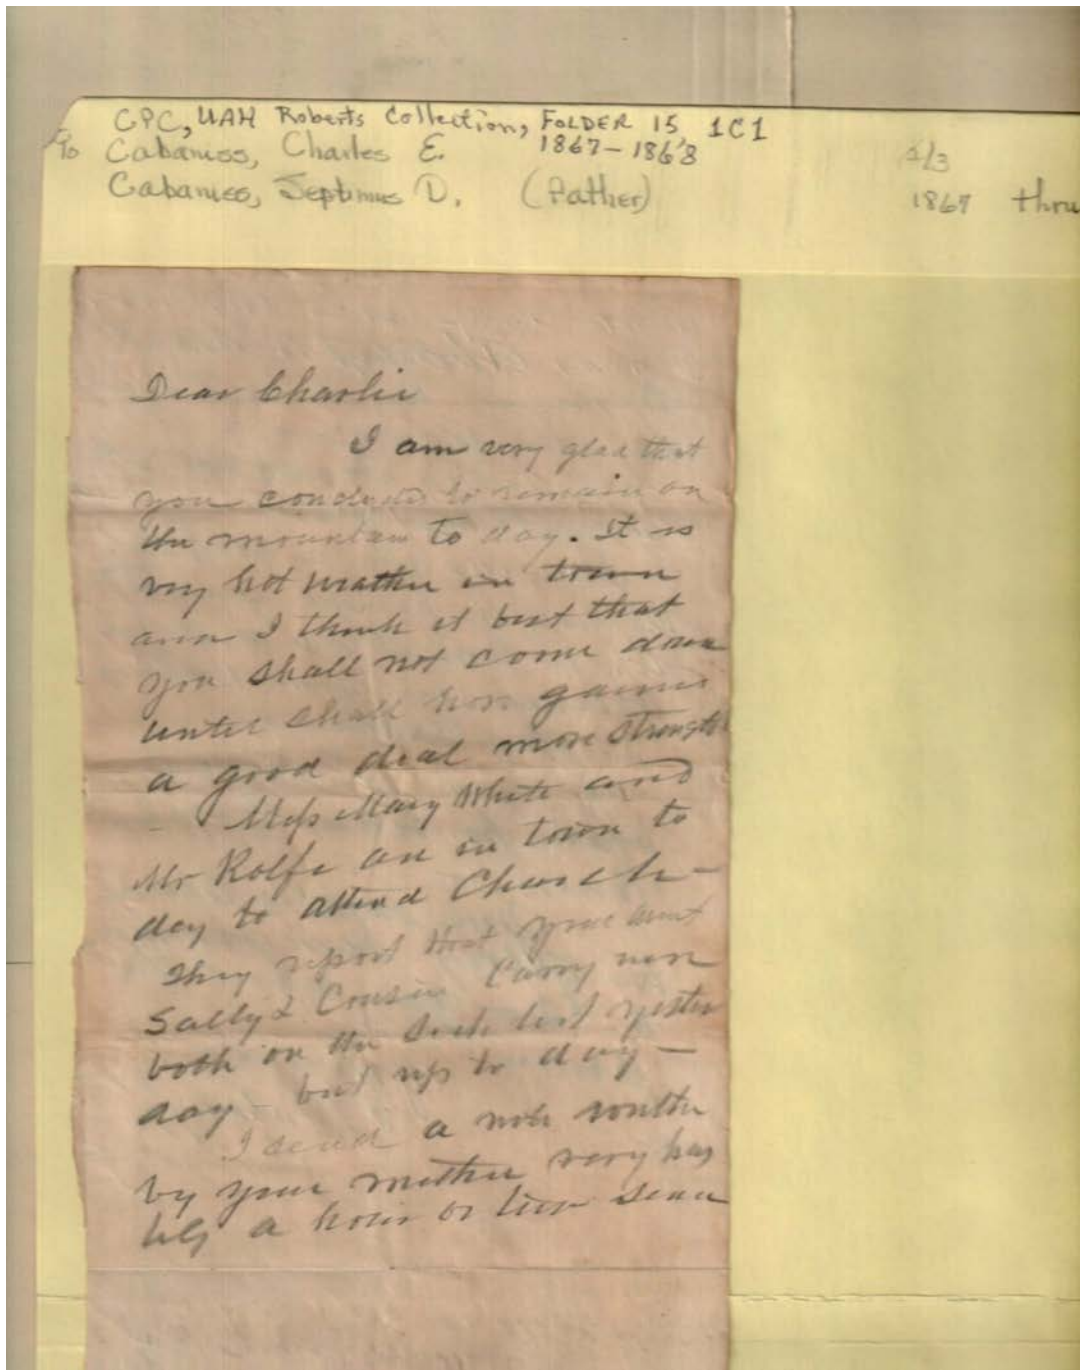 CPC, UAH Roberts Collection, FOLDER 15, 1C1
To Cabaniss, Charles E. 1867-1868 2/3
Cabaniss, Septimus D. (Father) 1867 thru
Dear Charlie
I am very glad that
you concluded to remain on
the mountain to day. It is
very hot weather in town
and I think it best that
you shall not come down
until shall have gained
a good deal more strength
- Miss Mary White and
Mr Rolfe are in town to
day to attend Church -
They report that your aunt
Sally & Cousin were
both on the sick list yester
day - but up to day -
I send a note written
by your mother very has
tily a hour or two since